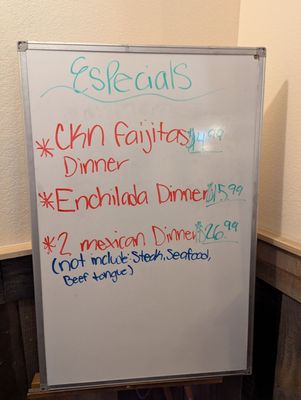 Especials
* Ckn faijitas $14.99
Dinner
* Enchilada Dinner $15.99
* 2 mexican Dinner $26.99
(not include: Steak, Seafood,
Beef tongue)